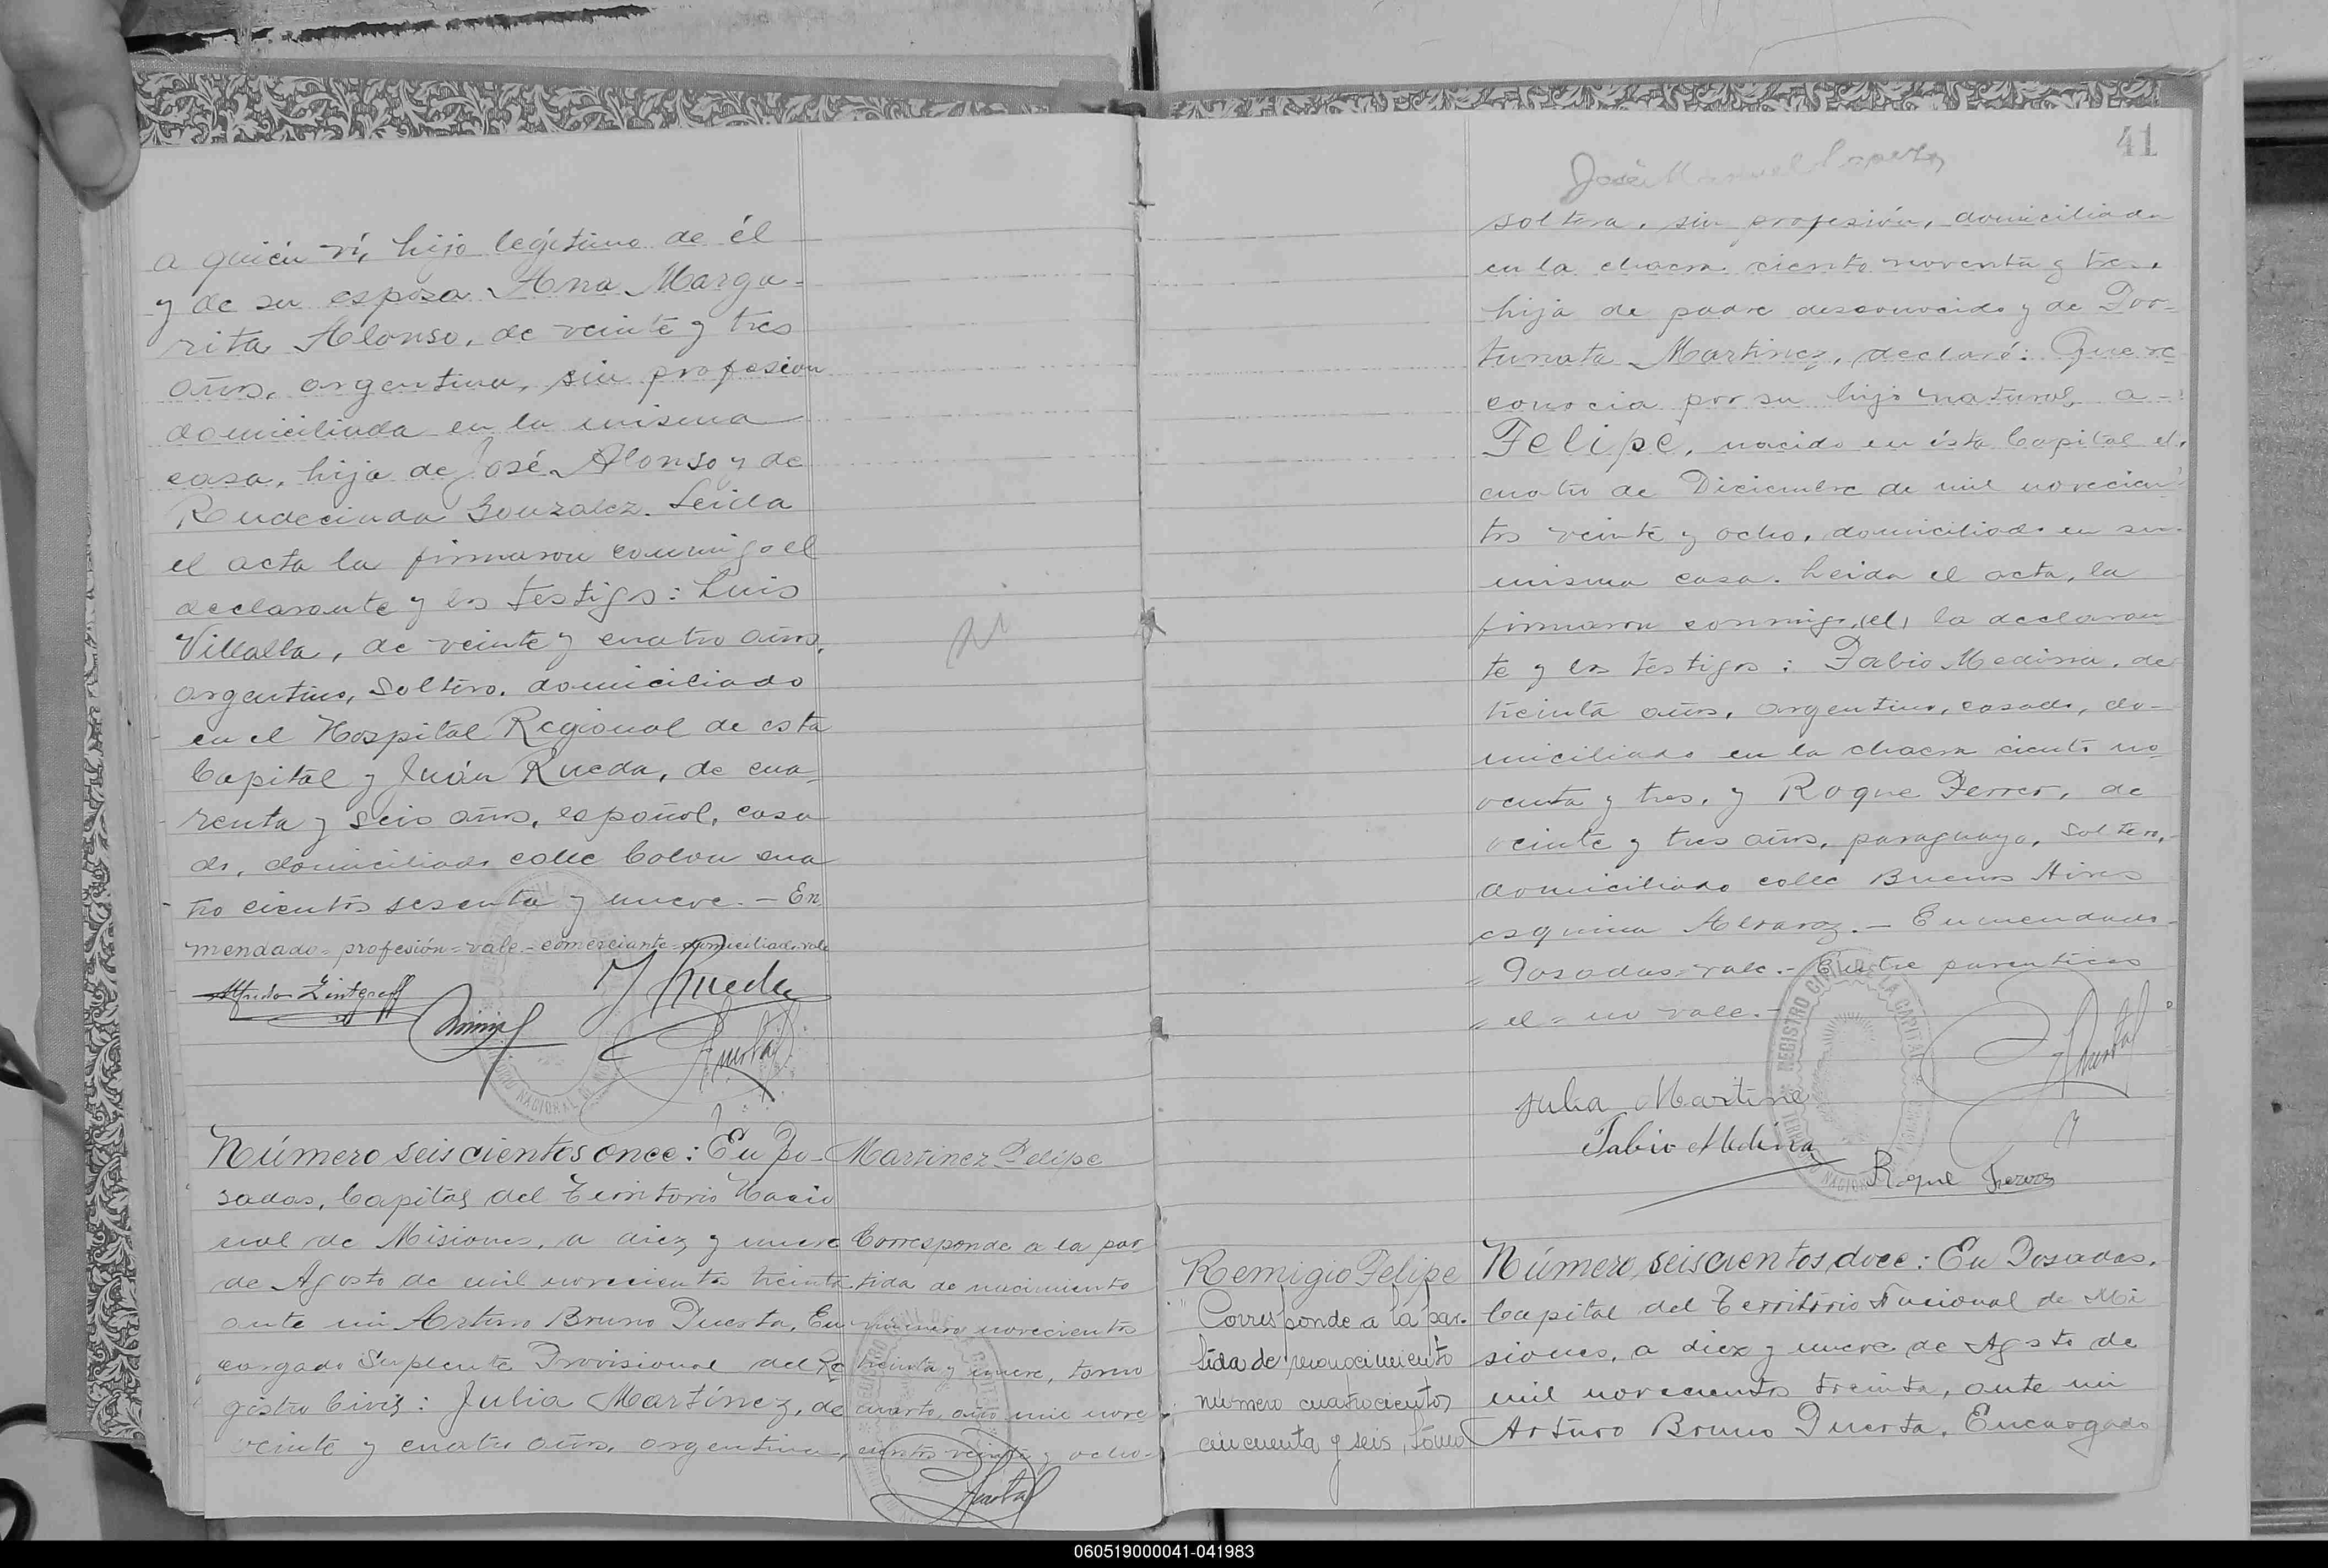 a quién ví, hijo legítimo de él
y de su esposa Ana Marga-
rita Alonso, de veinte y tres
años, argentina, sin profesion
domiciliada en la misma
casa, hija de José Alonso y de
Rudecinda Gonzalez. Leida
el acta la firmaron conmigo el
declarante y los testigos: Luis
Villalba, de veinte y cuatro años,
argentino, soltero, domiciliado
en el Hospital Regional de esta
Capital y Juán Rueda, de cua-
renta y seis años, español, casa
do, domiciliado calle Colon cua
tro cientos sesenta y nueve. - En
mendado = profesión = vale - comerciante = domiciliado vale
Alfredo Zintgraff
J Rueda
Número seiscientos once: En Po-
sadas, Capital del Territorio Nacio
nal de Misiones, a diez y nueve
de Agosto de mil novecientos treinta
ante mi Arturo Bruno Puerta, En
cargado Suplente Provisional del Re
gistro Civil: Julia Martínez, de
veinte y cuatro años, argentina,
Martinez Felipe
Corresponde a la par
tida de nacimiento
número novecientos
treinta y nueve, tomo
cuarto, año mil nove
cientos veinte y ocho.
Puerta
41
José Manuel
soltera, sin profesión, domiciliada
en la chacra ciento noventa y tres,
hija de padre desconocido y de For-
tunata Martinez, declaró: Que re
conocia por su hijo natural, a -
Felipe, nacido en ésta Capital el
cuatro de Diciembre de mil novecien
tos veinte y ocho, domiciliado en su
misma casa. Leida el acta, la
firmaron conmigo, (el) la declaran
te y los testigos: Fabio Medina, de
treinta años, argentino, casado, do-
miciliado en la chacra ciento no
venta y tres, y Roque Ferrer, de
veinte y tres años, paraguayo, soltero,
domiciliado calle Buenos Aires
esquina Alvarez. - Enmendado -
= Posadas = vale. - Entre parentices
= el = no vale. -
Puerta
Julia Martine
Fabio Medina
Roque
Remigio Felipe
Corresponde a la par-
tida de reconocimiento
número cuatrocientos
cincuenta y seis, tomo
Número seiscientos doce: En Posadas,
Capital del Territorio Nacional de Mi
siones, a diez y nueve de Agosto de
mil novecientos treinta, ante mi
Arturo Bruno Puerta, Encargado
060519000041-041983